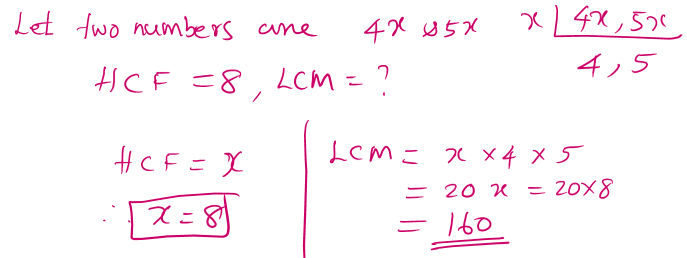 Let two numbers are 4x & 5x
x | 4x, 5x
4, 5
HCF = 8, LCM = ?
HCF = x
∴ x = 8
LCM = x × 4 × 5
= 20 x = 20×8
= 160